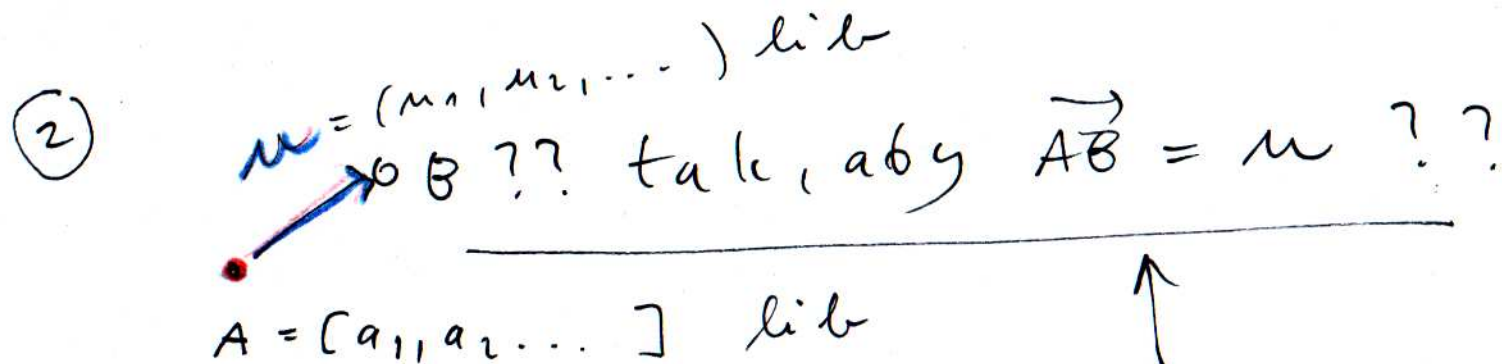 ② u = (u₁, u₂, ...) lib
B ?? tak, aby \overrightarrow{AB} = u ??
A = [a₁, a₂ ... ] lib